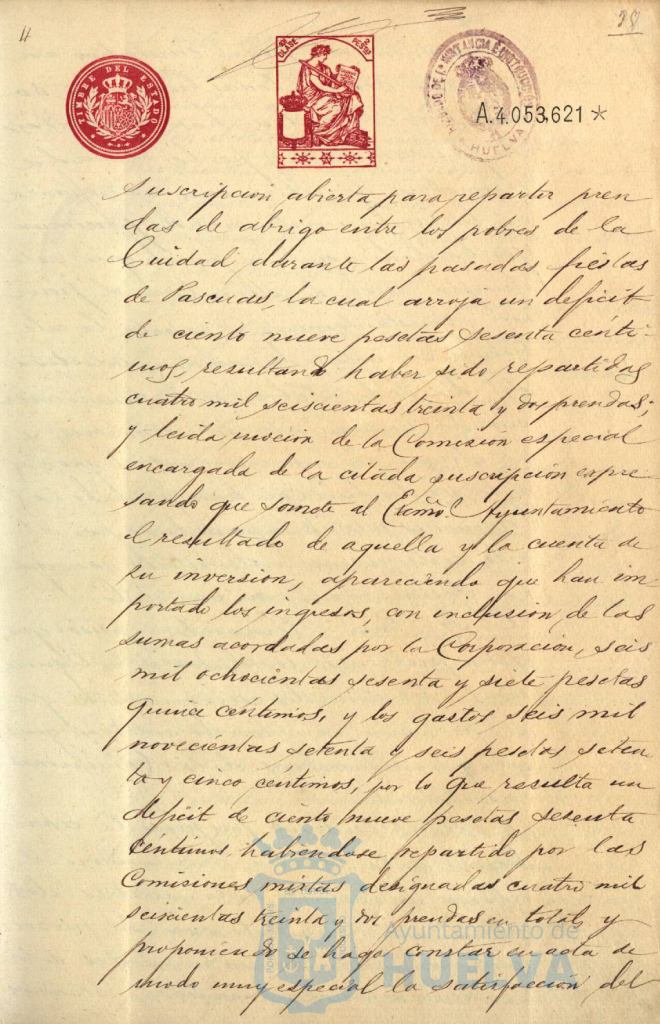 11
38
TIMBRE DEL ESTADO
CLASE
PESETAS
HUELVA
A.4.053,621 *
suscripción abierta para repartir pren
das de abrigo entre los pobres de la
Ciudad durante las pasadas fiestas
de Pascuas, la cual arroja un déficit
de ciento nueve pesetas sesenta cénti-
mos, resultando haber sido repartidas
cuatro mil seiscientas treinta y dos prendas;
y leida moción de la Comisión especial
encargada de la citada suscripción expre-
sando que somete al Excmo. Ayuntamiento
el resultado de aquella y la cuenta de
su inversión, apareciendo que han im
portado los ingresos, con inclusión de las
sumas acordadas por la Corporación, seis
mil ochocientas sesenta y siete pesetas
quince céntimos, y los gastos seis mil
novecientas setenta y seis pesetas seten
ta y cinco céntimos, por lo que resulta un
déficit de ciento nueve pesetas sesenta
céntimos, habiéndose repartido por las
Comisiones mixtas designadas cuatro mil
seiscientas treinta y dos prendas en total, y
proponiendo se haga constar en acta de
modo muy especial la satisfacción del
Ayuntamiento de
HUELVA